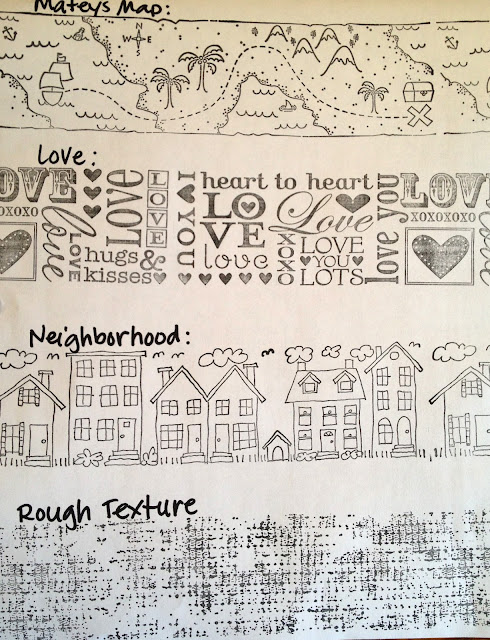 Mateys Map:
N
W E
S
X
Love:
OVE
XOXOXO
love
LOVE
hugs &
kisses
LOVE
LOVE
I ♥ YOU
heart to heart
LO
VE
love
Love
XOXO
LOVE
♥YOU♥
LOTS
love you
LOVE
XOXOXOXO
Neighborhood:
Rough Texture